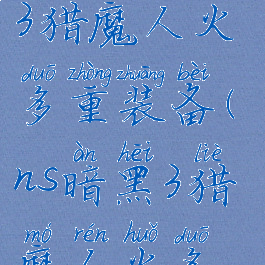 3猎魔人火
duō zhòng zhuāng bèi
多重装备(
àn hēi liè
ns暗黑3猎
mó rén huǒ duō
魔人火多